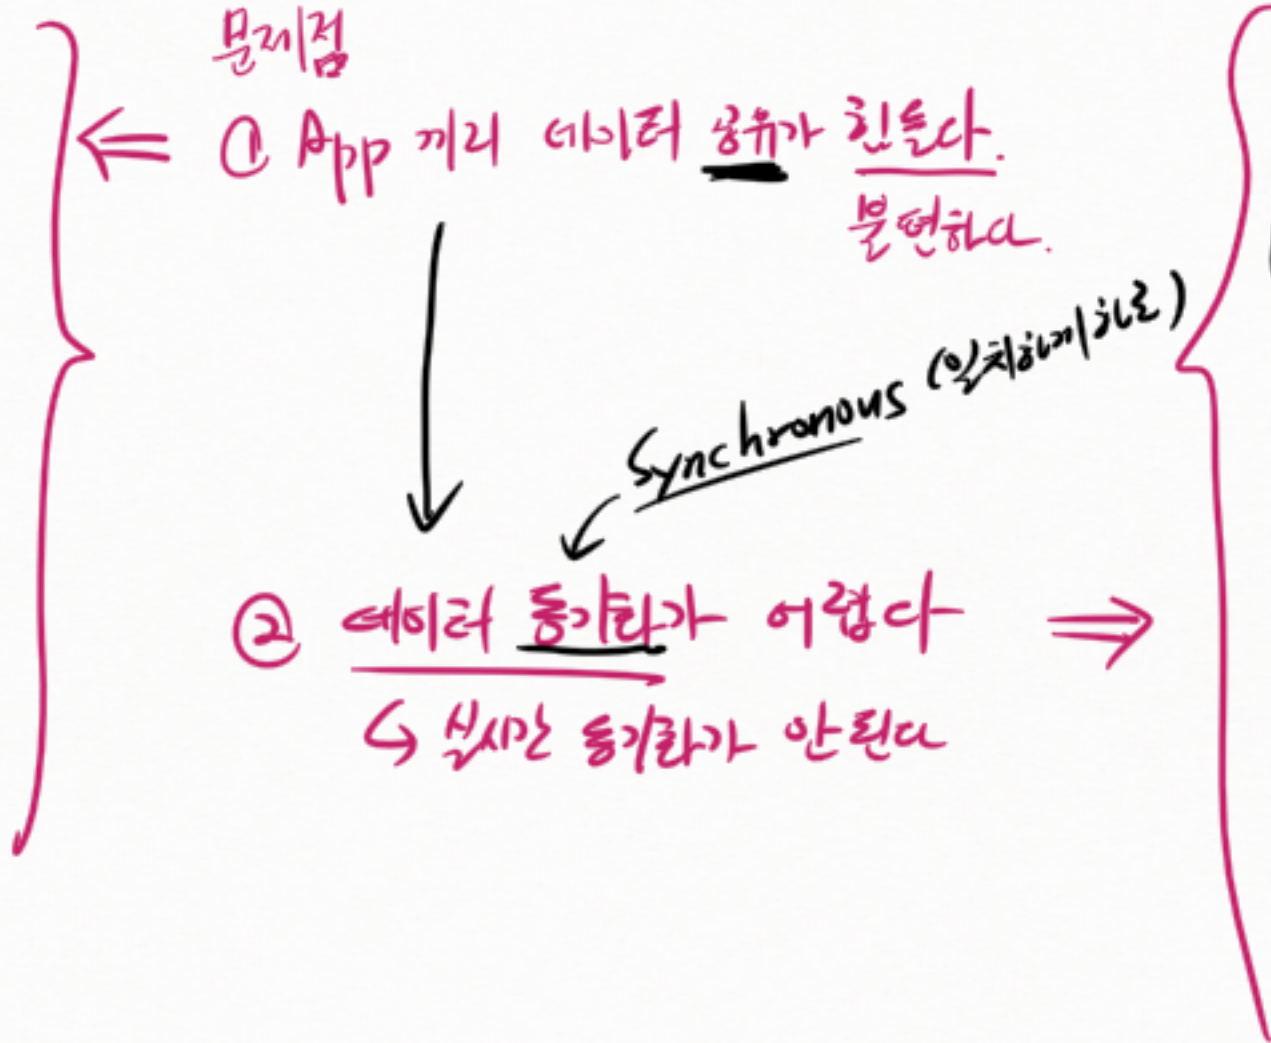 문제점
① App 끼리 데이터 공유가 힘들다.
불편하다.
Synchronous (일치하게하로)
② 데이터 동기화가 어렵다
↳ 실시간 동기화가 안된다